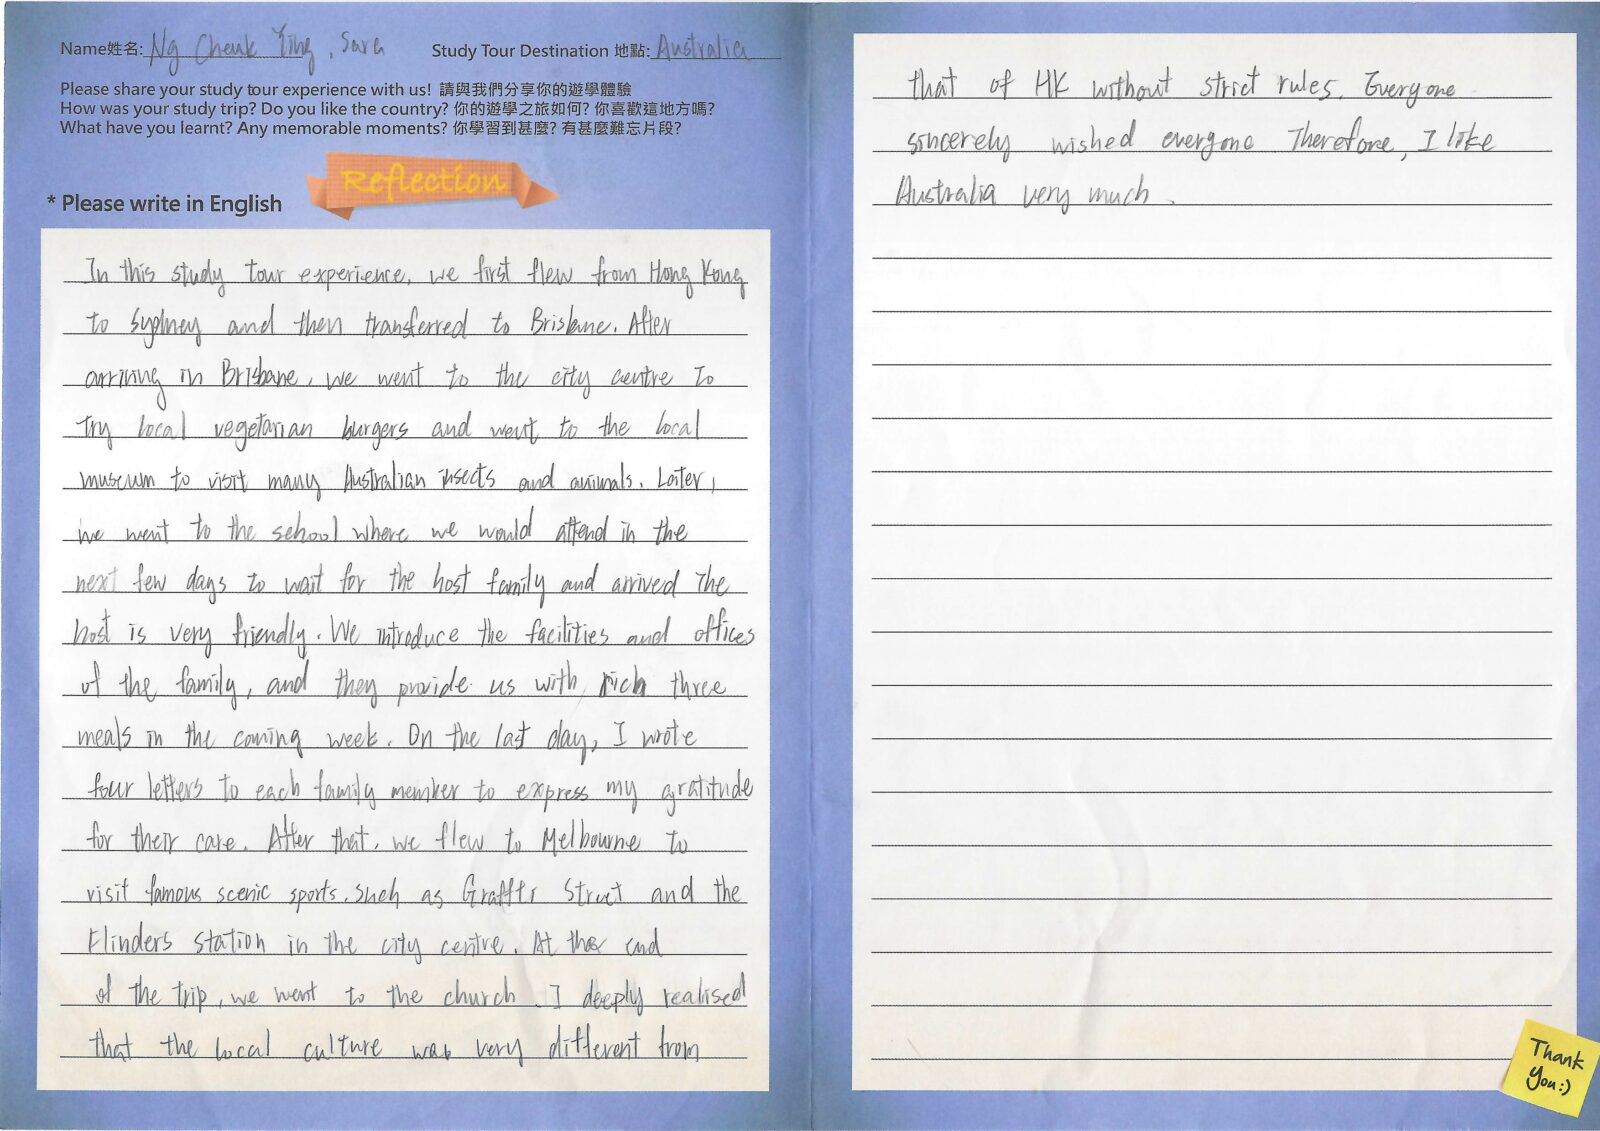 Name姓名: Ng Cheuk Ying, Sara Study Tour Destination 地點: Australia
Please share your study tour experience with us! 請與我們分享你的遊學體驗
How was your study trip? Do you like the country? 你的遊學之旅如何? 你喜歡這地方嗎?
What have you learnt? Any memorable moments? 你學習到甚麼? 有甚麼難忘片段?
Reflection
* Please write in English
In this study tour experience, we first flew from Hong Kong
to Sydney and then transferred to Brisbane. After
arriving in Brisbane, we went to the city centre to
try local vegetarian burgers and went to the local
museum to visit many Australian insects and animals. Later,
we went to the school where we would attend in the
next few days to wait for the host family and arrived The
host is very friendly. We introduce the facilities and offices
of the family, and they provide us with rich three
meals in the coming week. On the last day, I wrote
four letters to each family member to express my gratitude
for their care. After that, we flew to Melbourne to
visit famous scenic sports. Such as Graffti Street and the
Flinders station in the city centre. At the end
of the trip, we went to the church. I deeply realised
that the local culture was very different from
that of HK without strict rules. Everyone
sincerely wished everyone Therefore, I like
Australia very much.
Thank
You:)